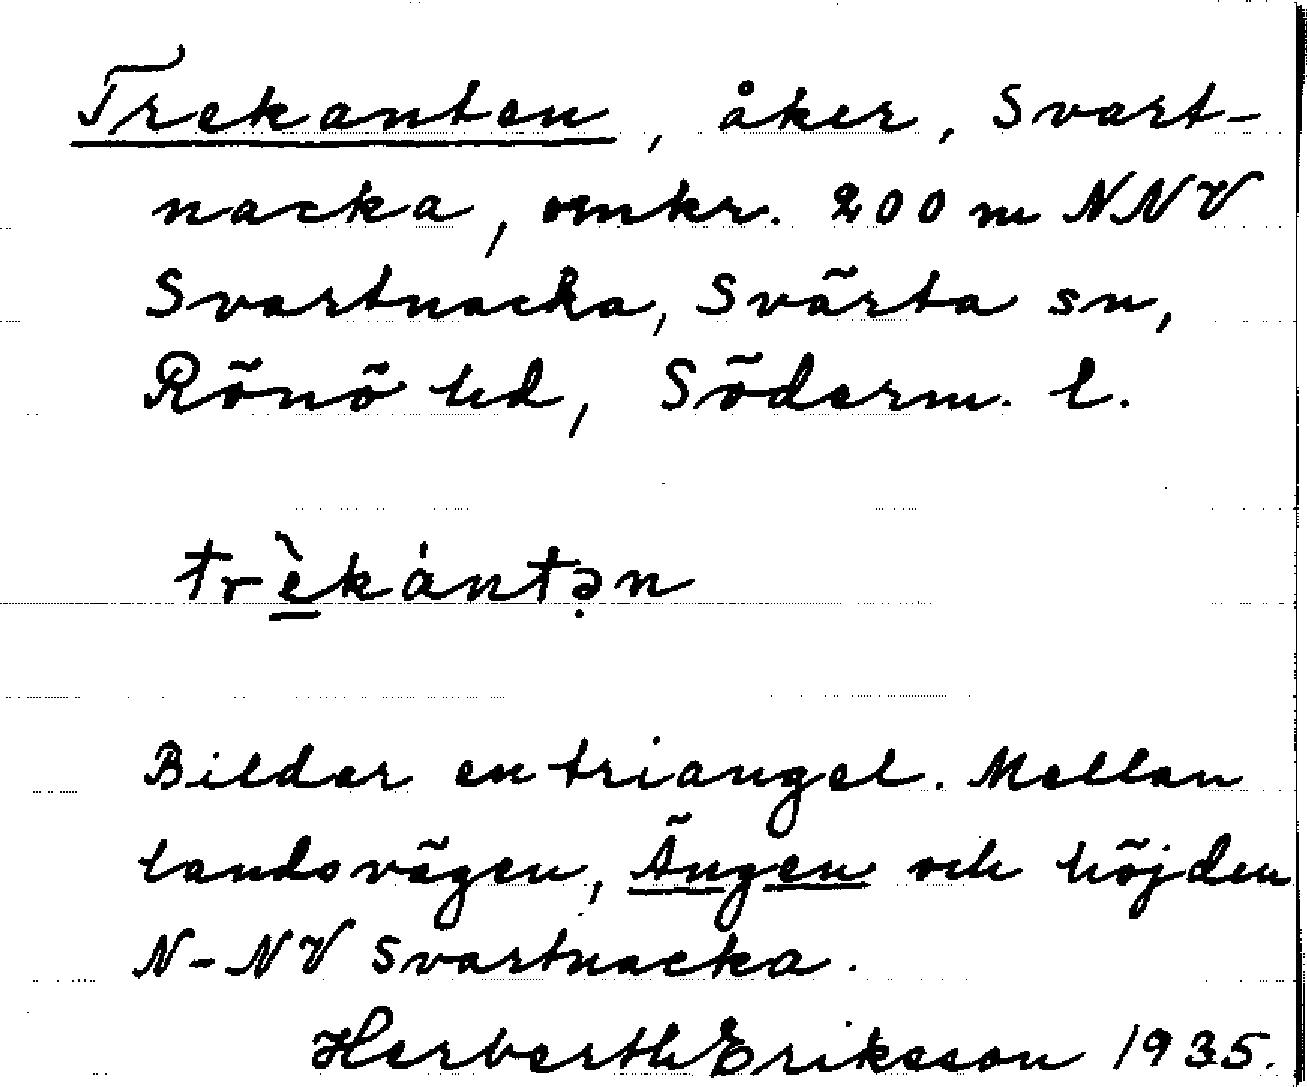 Trekanten, åker, Svart-
nacka, omkr. 200 m NNV
Svartnacka, Svärta sn,
Rönö hd, Söderm. l.
trè̠kántə̣n
Bildar en triangel. Mellan
landsvägen, Ängen och höjden
N-NV Svartnacka.
Herberth Eriksson 1935.